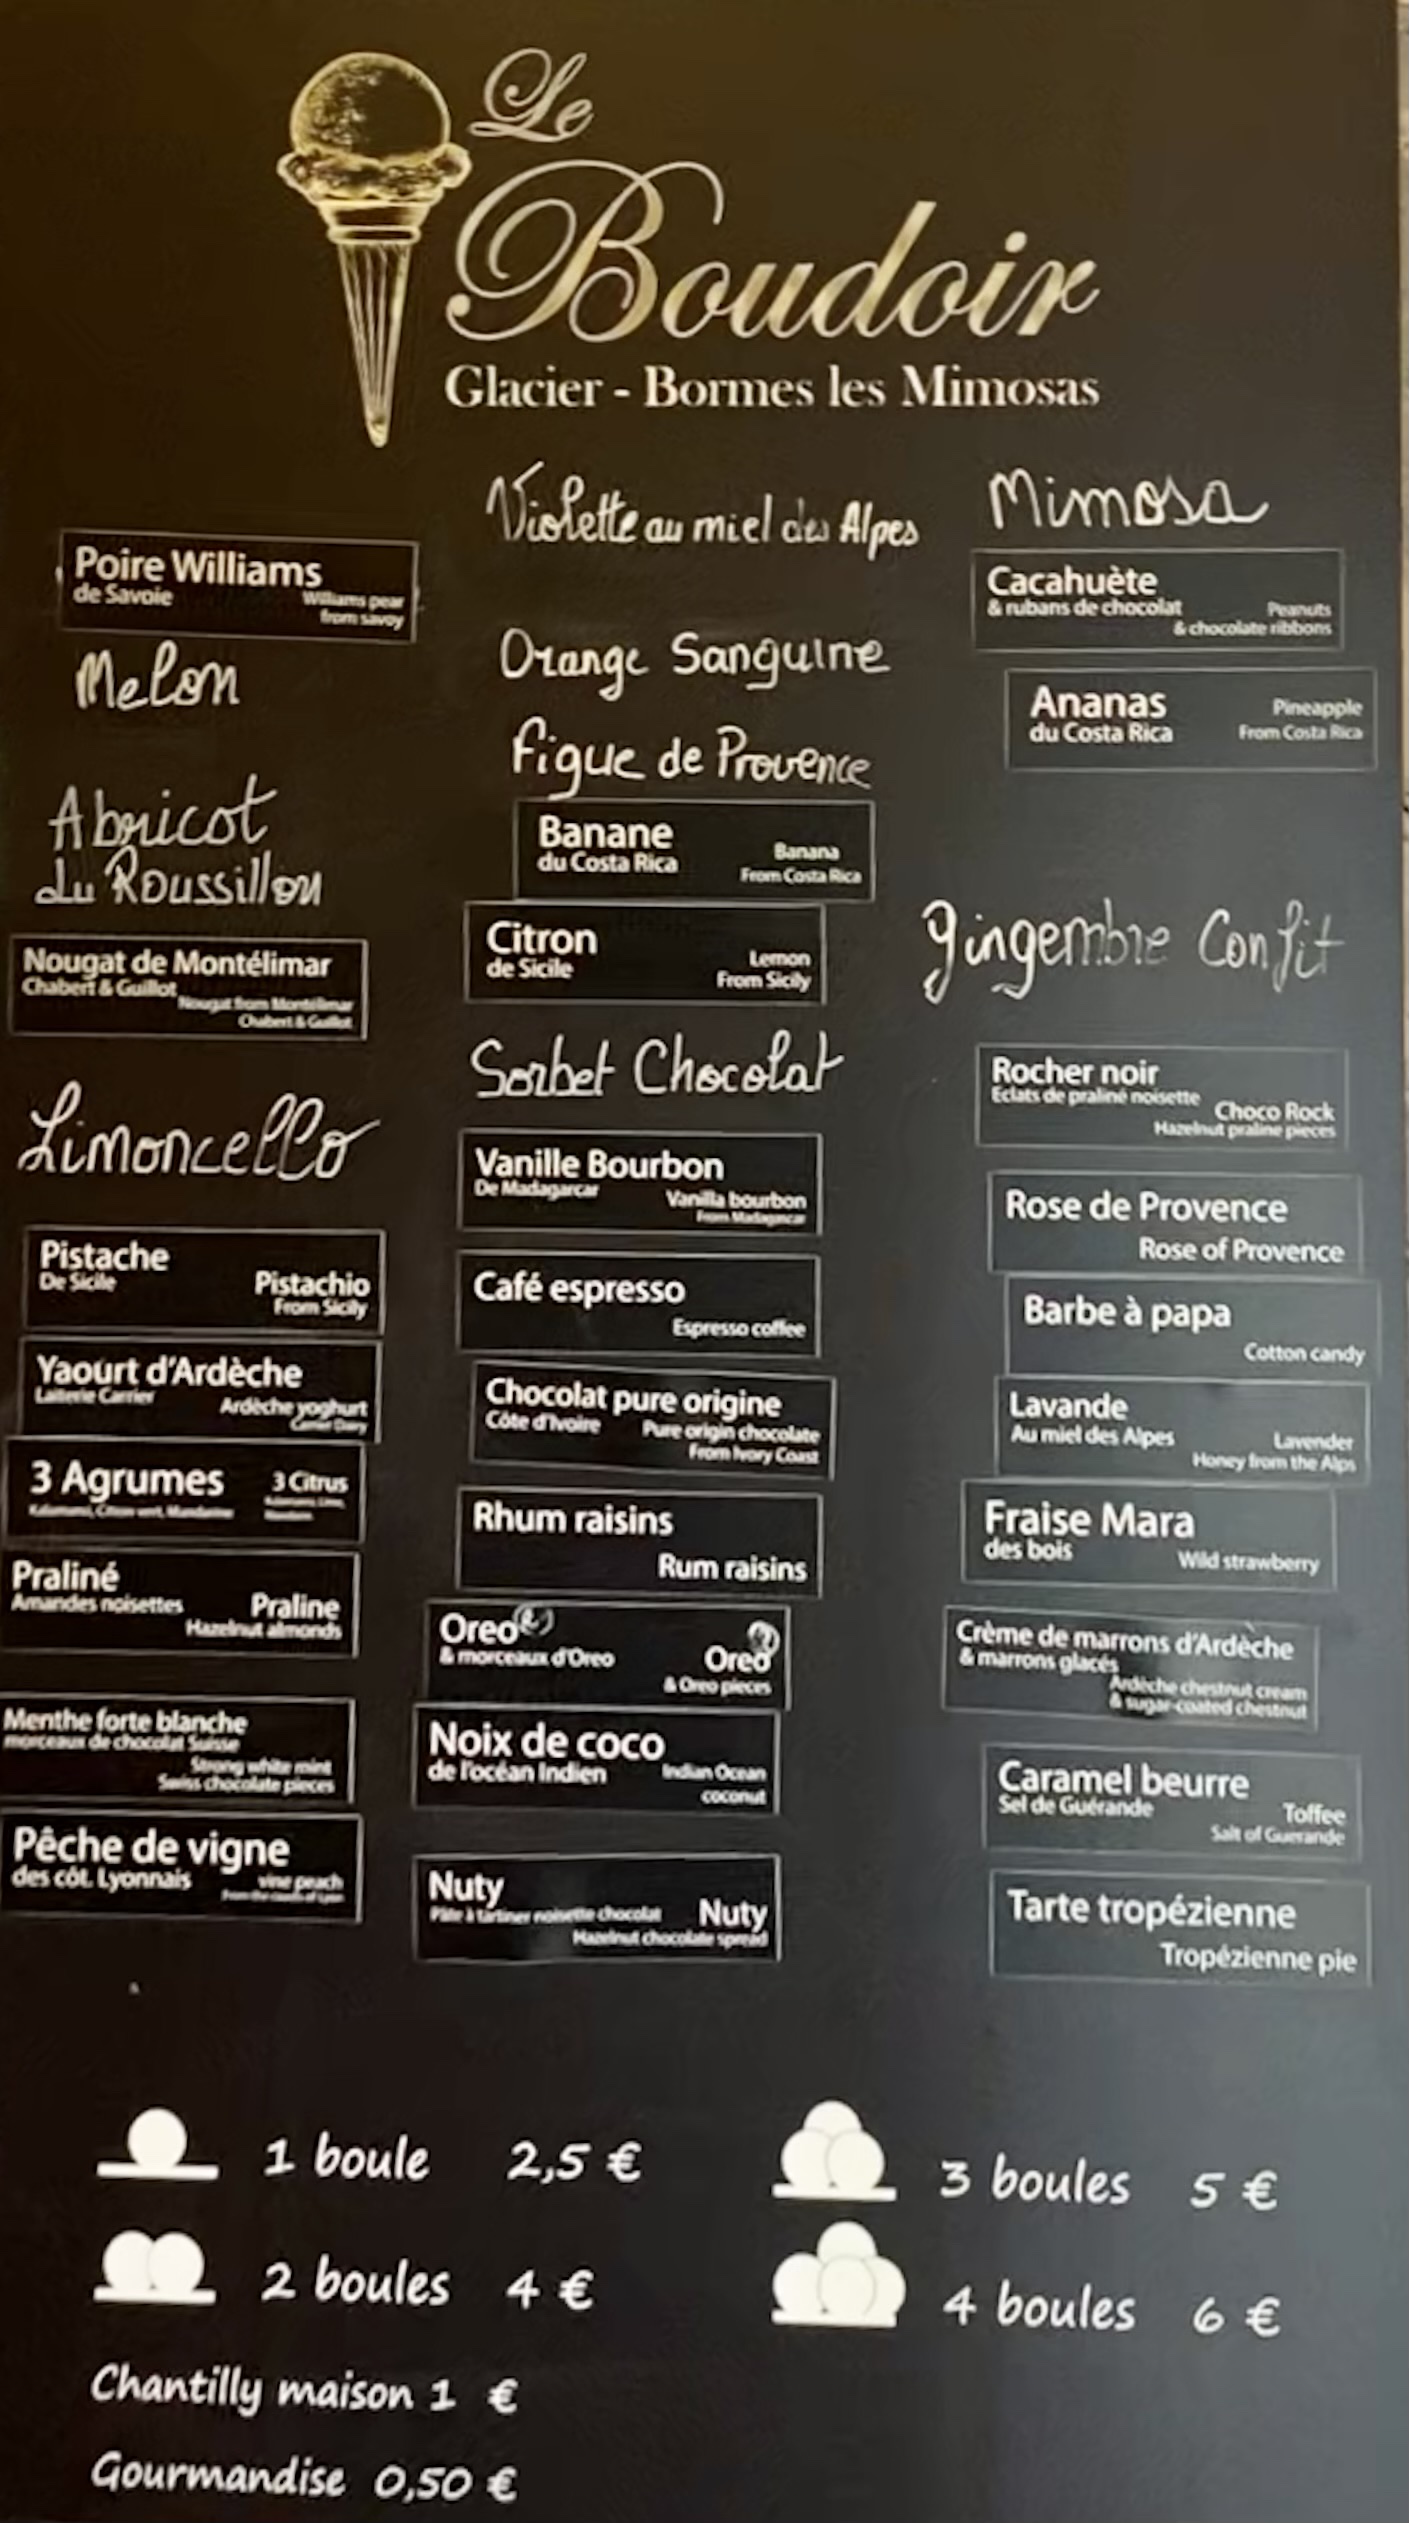 Le
Boudoir
Glacier - Bormes les Mimosas
Poire Williams
de Savoie
Williams pear
from savoy
Melon
Abricot
du Roussillon
Nougat de Montélimar
Chabert & Guillot
Nougat from Montélimar
Chabert & Guillot
Limoncello
Pistache
De Sicile
Pistachio
From Sicily
Yaourt d'Ardèche
Laiterie Carrier
Ardèche yoghurt
Carrier Dairy
3 Agrumes
3 Citrus
Kalamansi, Citron vert, Mandarine
Praliné
Amandes noisettes
Praline
Hazelnut almonds
Menthe forte blanche
morceaux de chocolat Suisse
Strong white mint
Swiss chocolate pieces
Pêche de vigne
des côt. Lyonnais
vine peach
Violette au miel des Alpes
Orange Sanguine
Figue de Provence
Banane
du Costa Rica
Banana
From Costa Rica
Citron
de Sicile
Lemon
From Sicily
Sorbet Chocolat
Vanille Bourbon
De Madagarcar
Vanilla bourbon
From Madagascar
Café espresso
Espresso coffee
Chocolat pure origine
Côte d'Ivoire
Pure origin chocolate
From Ivory Coast
Rhum raisins
Rum raisins
Oreo
& morceaux d'Oreo
Oreo
& Oreo pieces
Noix de coco
de l'océan Indien
Indian Ocean
coconut
Nuty
Pâte à tartiner noisette chocolat
Nuty
Hazelnut chocolate spread
Mimosa
Cacahuète
& rubans de chocolat
Peanuts
& chocolate ribbons
Ananas
du Costa Rica
Pineapple
From Costa Rica
gingembre Confit
Rocher noir
Eclats de praliné noisette
Choco Rock
Hazelnut praline pieces
Rose de Provence
Rose of Provence
Barbe à papa
Cotton candy
Lavande
Au miel des Alpes
Lavender
Honey from the Alps
Fraise Mara
des bois
Wild strawberry
Crème de marrons d'Ardèche
& marrons glacés
Ardèche chestnut cream
& sugar-coated chestnut
Caramel beurre
Sel de Guérande
Toffee
Salt of Guerande
Tarte tropézienne
Tropézienne pie
1 boule 2,5 €
2 boules 4 €
3 boules 5 €
4 boules 6 €
Chantilly maison 1 €
Gourmandise 0,50 €